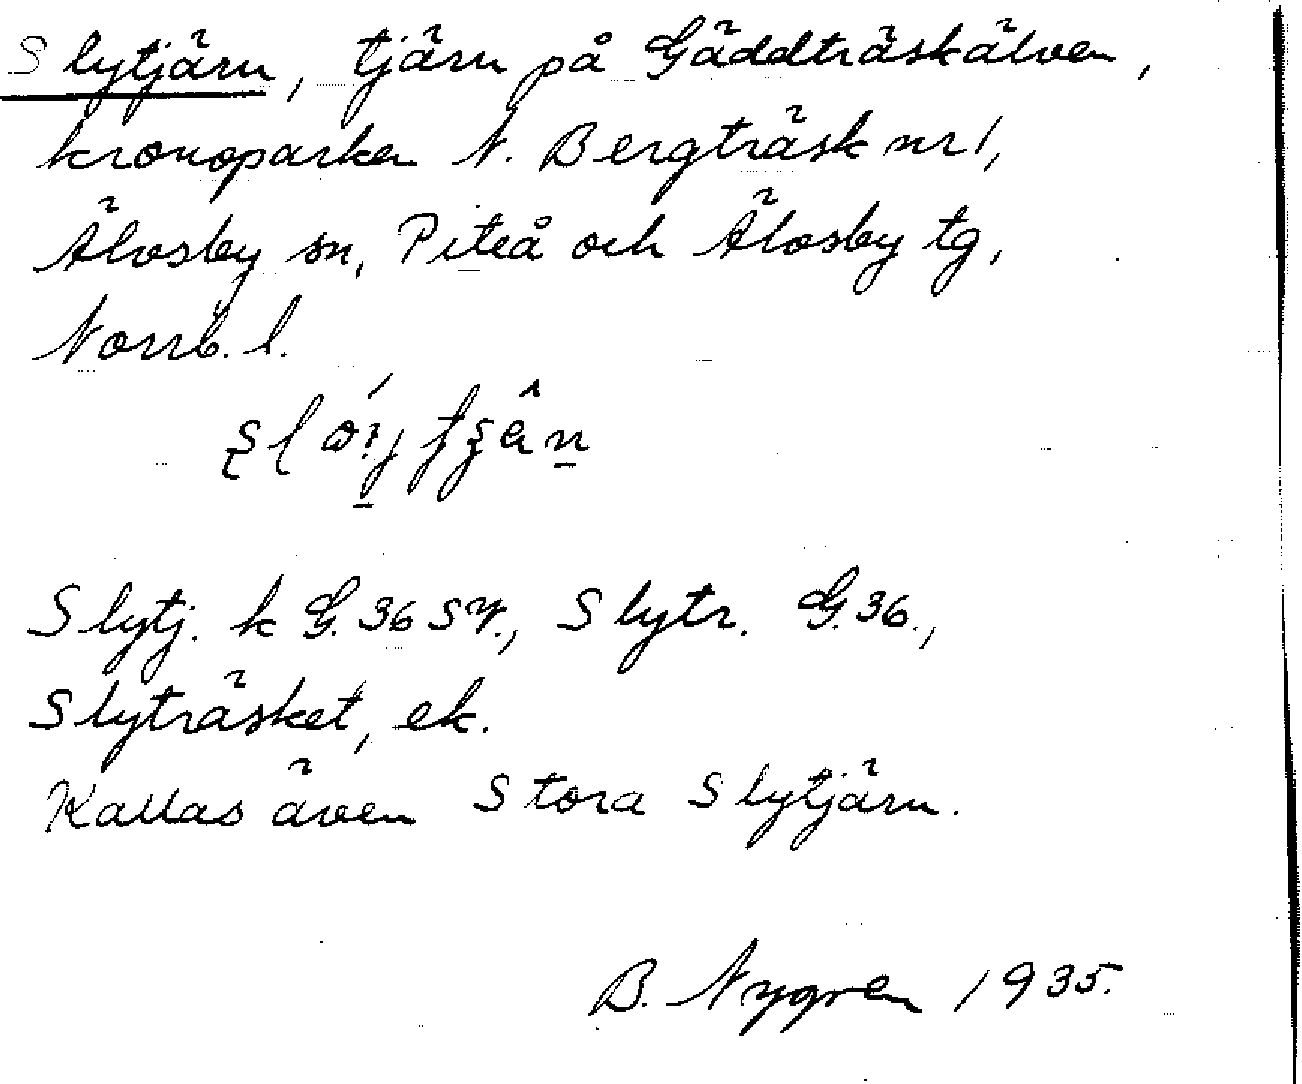 Slytjärn, tjärn på Gäddträskälven,
kronoparken N. Bergträsk nr 1,
Älvsby sn, Piteå och Älvsby tg,
Norrb. l.
Slytj. k G. 36 SV., Slytr. G. 36.,
Slyträsket, ek.
Kallas även Stora Slytjärn.
B. Nygren 1935.